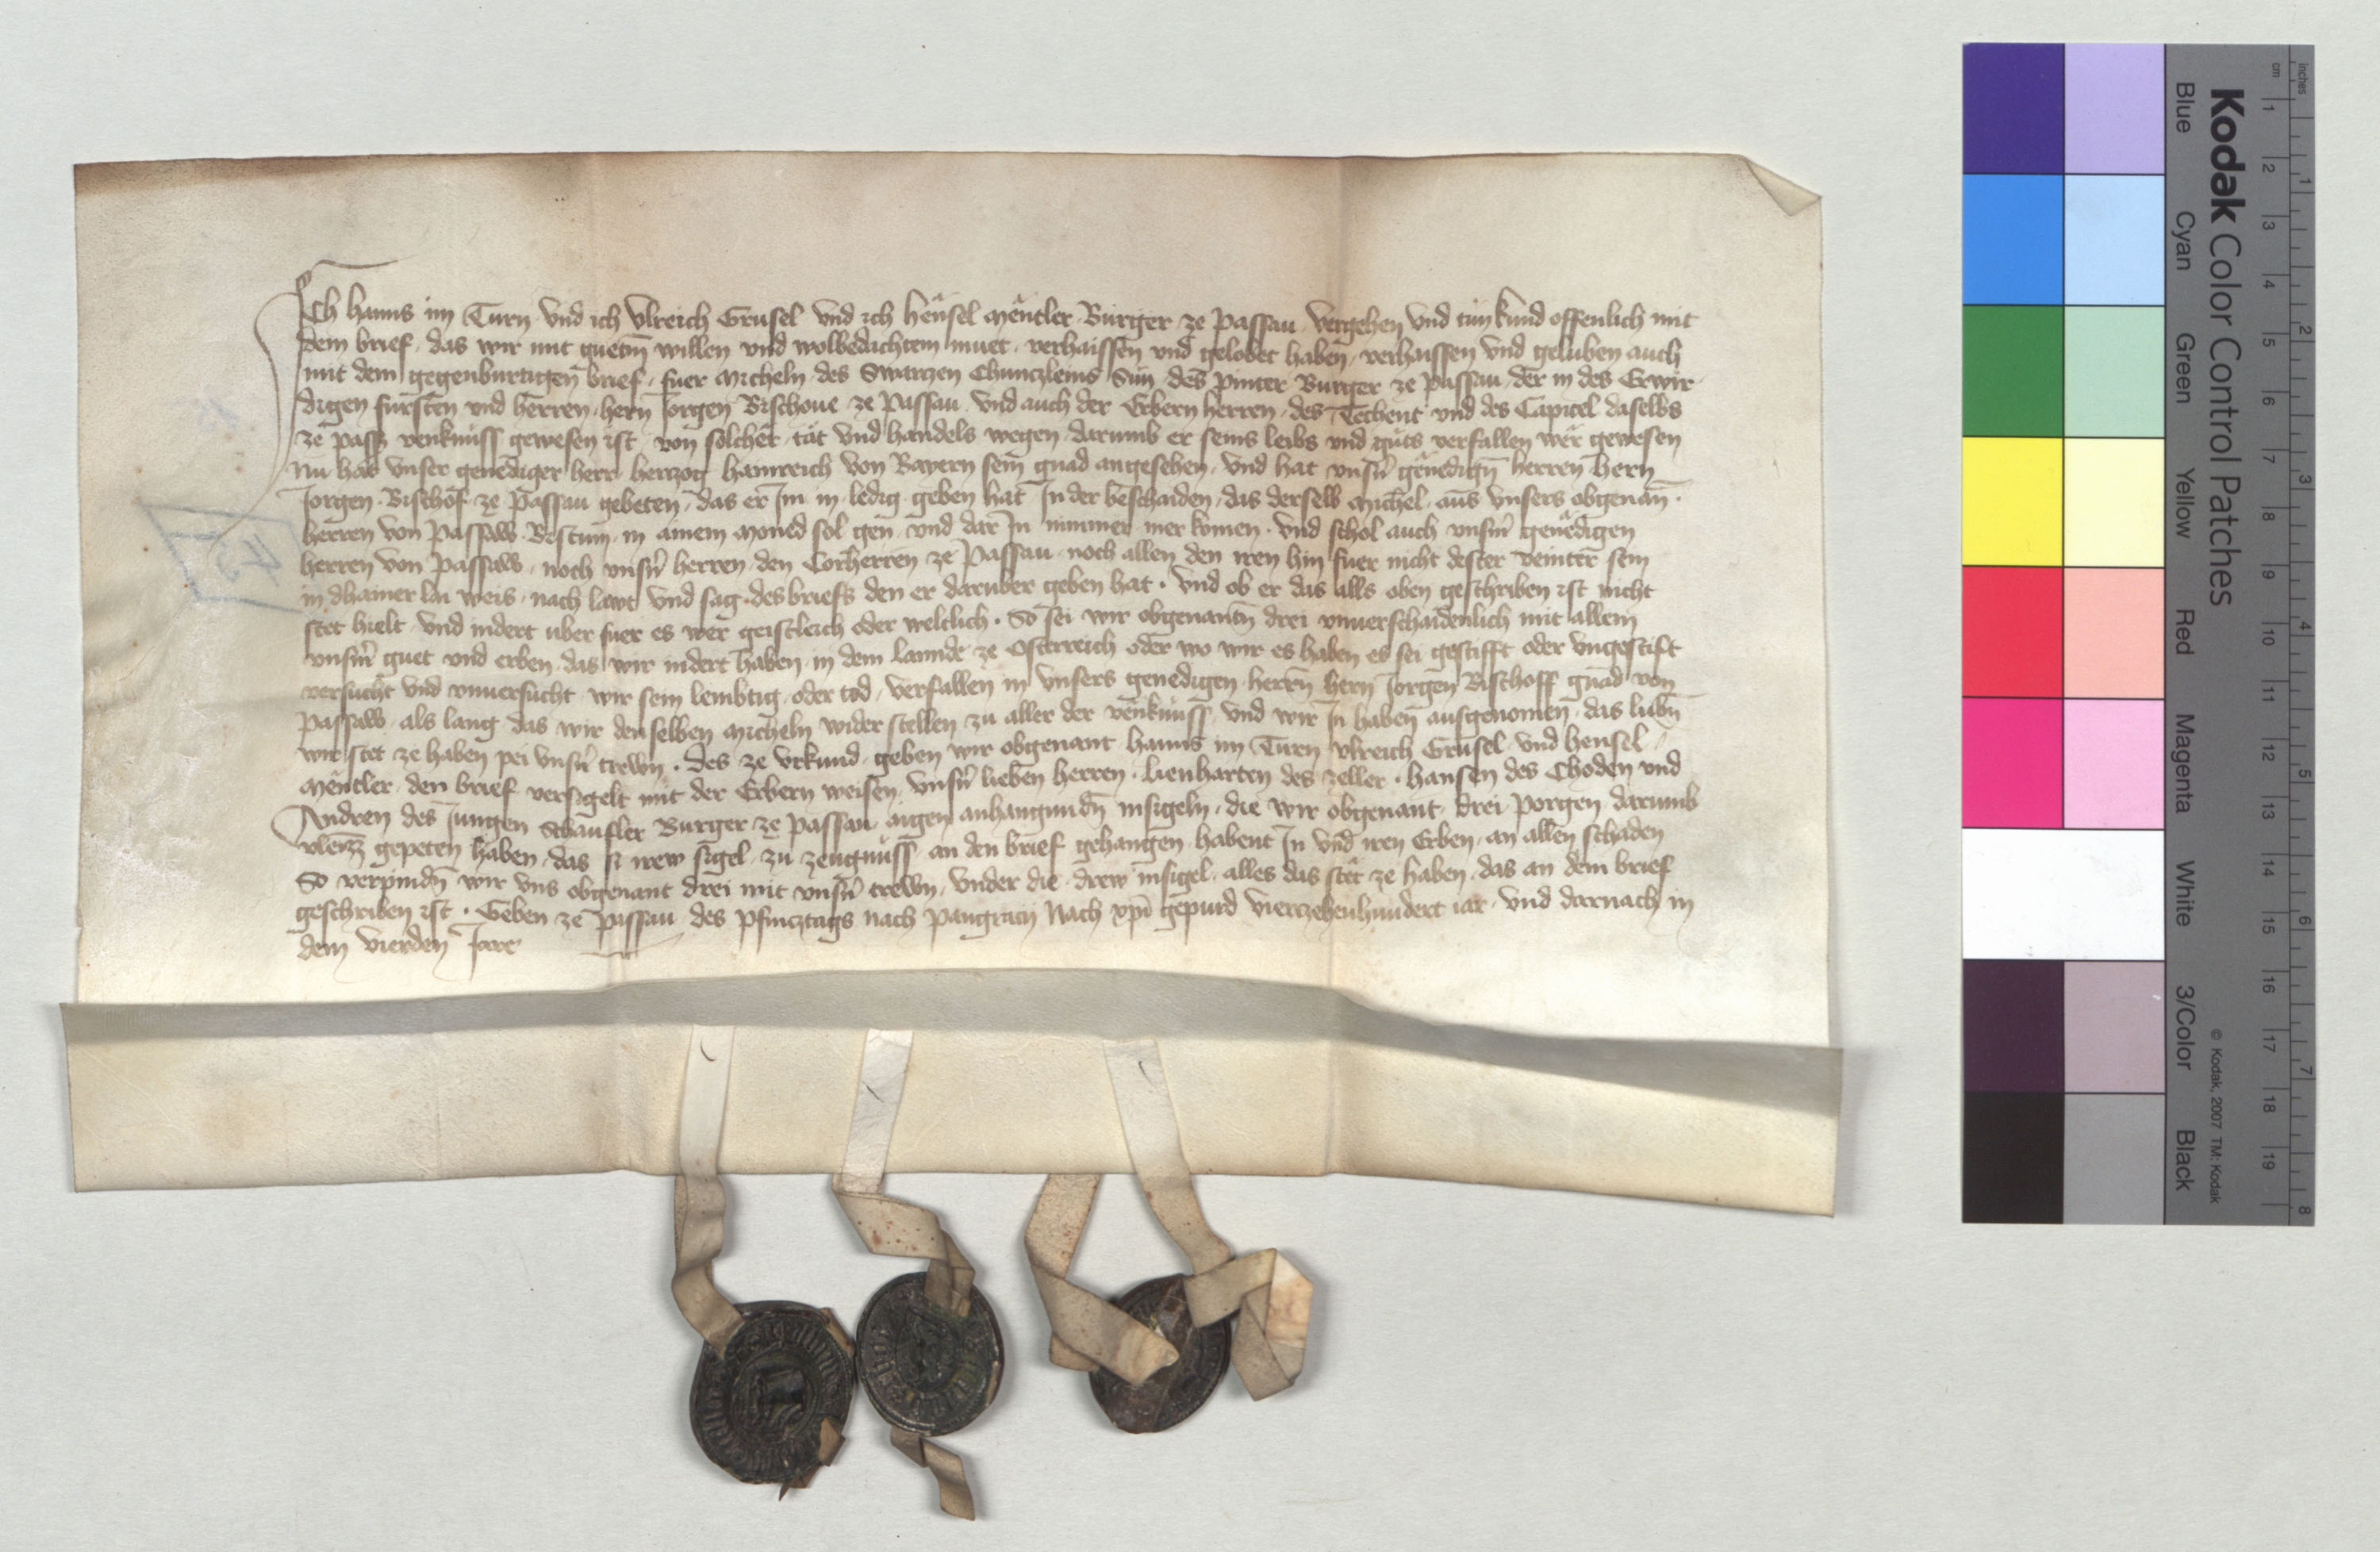 Ich Hanns im Turn vnd ich Vlreich Grusel vnd ich Hensel Mêntler Burger ze Passau vergehen vnd tun kund offenlich mit
dem brief, das wir mit guetm willen vnd wolbedachtem muet, verhaissen vnd gelobet haben, verhaissen vnd geluben auch
mit dem gegenburtigen brief, fuer Micheln des Swarczen Chunczleins Sun, des Pinter Burger ze Passau, der in des Erwir
digen fursten vnd herren, hern Jorgen Bischoue ze Passau vnd auch der Erbern herren, des Techent vnd des Capitel daselbs
ze Pass venknuss gewesen ist, von solcher tat vnd handels wegen, darumb er seins leibs vnd guts verfallen wêr gewesen
Nu hat vnser genediger herr herzog Hainreich von Bayern sein gnad angesehen, vnd hat vnsn genedign herren hern
Jorgen Bischof ze Passau gebeten, das er Jm in ledig geben hat Jn der beschaiden, das derselb Michel, aus vnsers obgenan
herren von Passaw Bistum, in ainem Moned sol gen vnd dar Jn nimmer mer komen. vnd schol auch vnsm genêdigen
herren von Passaw, noch vnsn herren, den Corherren ze Passau noch allen den iren hin fuer nicht dester veinter sein
in dhainer lai weis, nach lawt vnd sag des briefs den er daruber geben hat. vnd ob er das alls oben geschriben ist nicht
stet hielt vnd indert uber fuer es wer geistleich oder weltlich. So sei wir obgenantn drei vnuerschaidenlich mit allem
vnsm guet vnd erben, das wir indert haben, in dem Lannde ze Osterreich oder wo wir es haben es sei gestifft oder vngestift
versucht vnd vnuersucht wir sein lembtig, oder tod, verfallen in vnsers genedigen herrn hern Jorgen Bischoff gnad von
Passaw als lang das wir denselben Micheln wider stellen zu aller der venknuss, vnd wir Jn haben ausgenomen, das lubn
wir stet ze haben pei vnsn trewn. des ze vrkund geben wir obgenant Hanns im Turn Vlreich Grusel vnd Hensel
Mêntler den brief versigelt mit der Erbern weisen, vnsn lieben herren. Lienharten des Zeller. Hansen des Choden vnd
Andren des Jungen Schaufler Burger ze Passau aigen anhangundn insigeln, die wir obgenant drei Porgen darumb
vleizz gepeten haben, das si irew sigel zu zeugnuss an den brief gehangen habent Jn vnd iren Erben, an allen schaden
So verpindn wir vns obgenant drei mit vnsn trewn, vnder die drew insigel, alles das stêt ze haben, das an dem brief
geschriben ist. Geben ze Passau des Pfincztags nach Pangracii Nach xpi gepurd vierczehenhundert iar vnd darnach in
dem vierden Jare
43
Kodak Color Control Patches
Blue Cyan Green Yellow Red Magenta White 3/Color Black
© Kodak, 2007 TM: Kodak
cm 1 2 3 4 5 6 7 8 9 10 11 12 13 14 15 16 17 18 19
inches 1 2 3 4 5 6 7 8